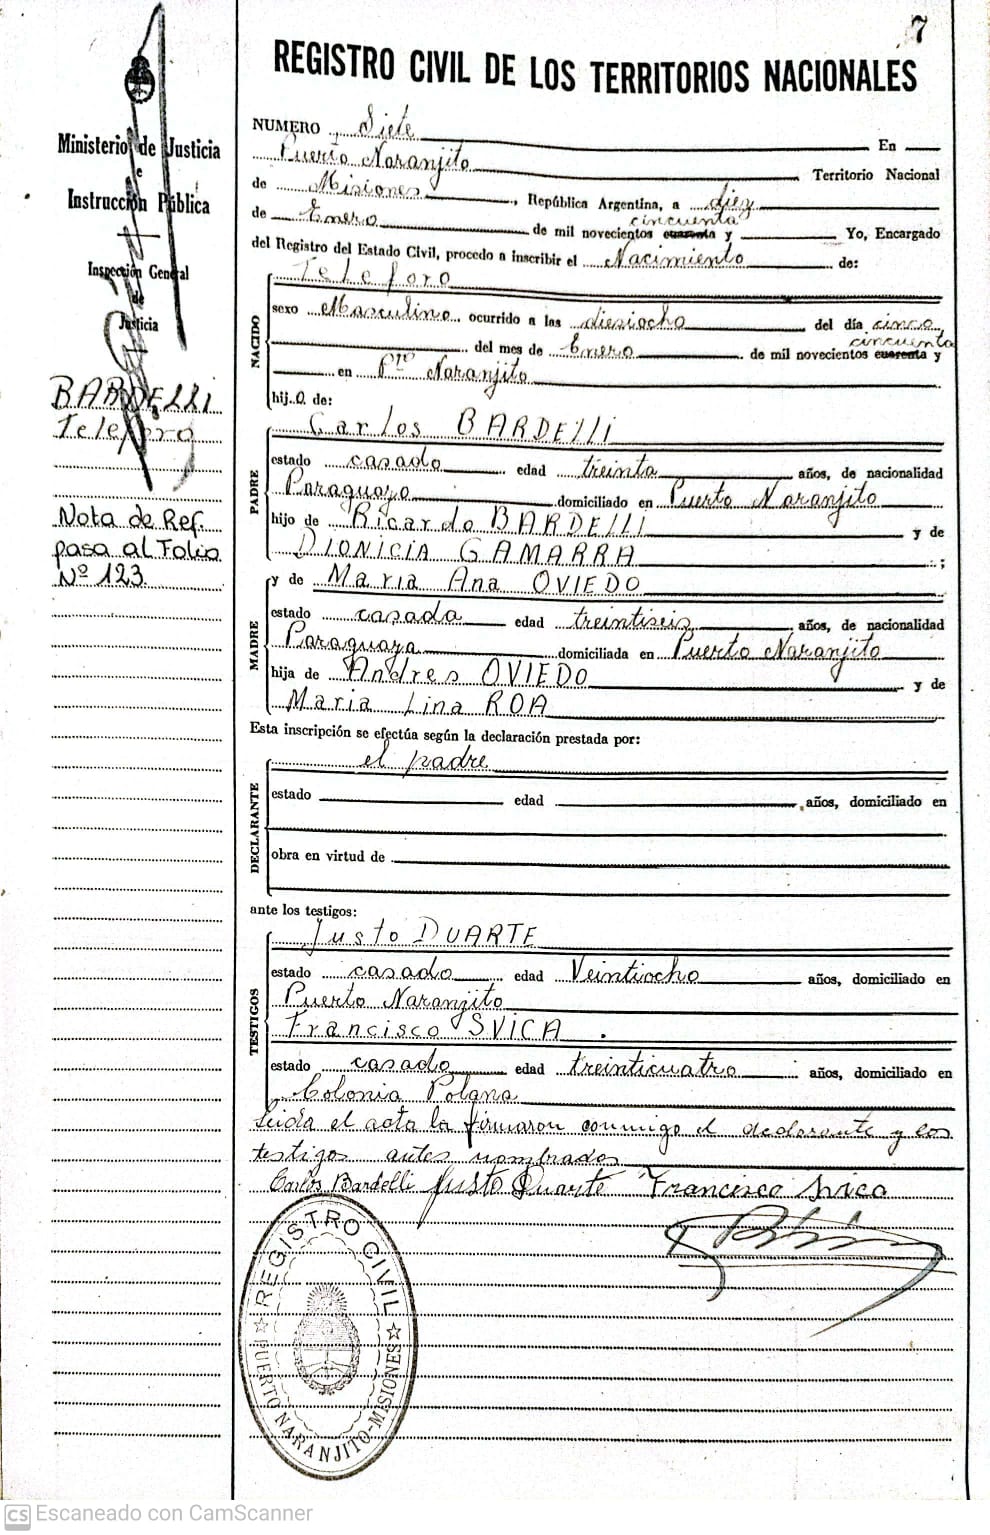 7
REGISTRO CIVIL DE LOS TERRITORIOS NACIONALES
Ministerio de Justicia
e
Instrucción Pública
Inspección General
de
Justicia
BARDELLI
Telesforo
Nota de Ref.
pasa al Folio
Nº 123
NUMERO Siete En
Puerto Naranjito Territorio Nacional
de Misiones, República Argentina, a diez
de Enero de mil novecientos cuarenta cincuenta y Yo, Encargado
del Registro del Estado Civil, procedo a inscribir el Nacimiento de:
NACIDO
Telesforo
sexo Masculino ocurrido a las diesiocho del día cinco
del mes de Enero de mil novecientos cuarenta cincuenta y
en Pto Naranjito
hij o de:
PADRE
Carlos BARDELLI
estado casado edad treinta años, de nacionalidad
Paraguayo domiciliado en Puerto Naranjito
hijo de Ricardo BARDELLI y de
DIONICIA GAMARRA ;
MADRE
y de Maria Ana OVIEDO
estado casada edad treintiseis años, de nacionalidad
Paraguaya domiciliada en Puerto Naranjito
hija de Andres OVIEDO y de
Maria Lina ROA
Esta inscripción se efectúa según la declaración prestada por:
DECLARANTE
el padre
estado edad años, domiciliado en
obra en virtud de
ante los testigos:
TESTIGOS
Justo DUARTE
estado casado edad Veintiocho años, domiciliado en
Puerto Naranjito
Francisco SVICA .
estado casado edad treinticuatro años, domiciliado en
Colonia Polana
Leida el acta la firmaron conmigo el declarante y los
testigos antes nombrados
Carlos Bardelli Justo Duarte Francisco Svica
REGISTRO CIVIL
PUERTO NARANJITO-MISIONES
CS Escaneado con CamScanner